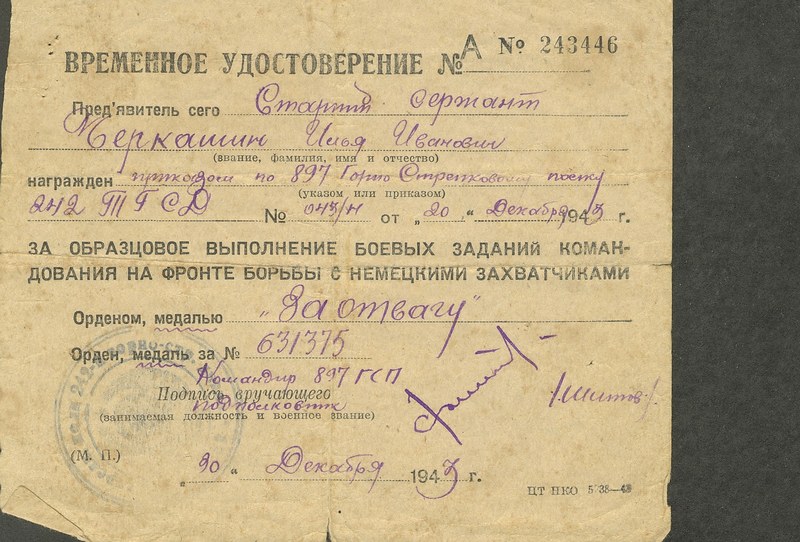 ВРЕМЕННОЕ УДОСТОВЕРЕНИЕ № А № 243446
Пред'явитель сего Старший сержант
Меркашин Илья Иванович
(звание, фамилия, имя и отчество)
награжден приказом по 897 Горно Стрелковому полку
(указом или приказом)
242 ТГСД № 043/н от „20 „ Декабря 1943 г.
ЗА ОБРАЗЦОВОЕ ВЫПОЛНЕНИЕ БОЕВЫХ ЗАДАНИЙ КОМАН-
ДОВАНИЯ НА ФРОНТЕ БОРЬБЫ С НЕМЕЦКИМИ ЗАХВАТЧИКАМИ
Орденом, медалью „За отвагу"
Орден, медаль за № 631375
Командир 897 ГСП
Подпись вручающего
подполковник
(занимаемая должность и военное звание)
(М. П.)
„30 " Декабря 1943 г.
ЦТ НКО 5 38—43